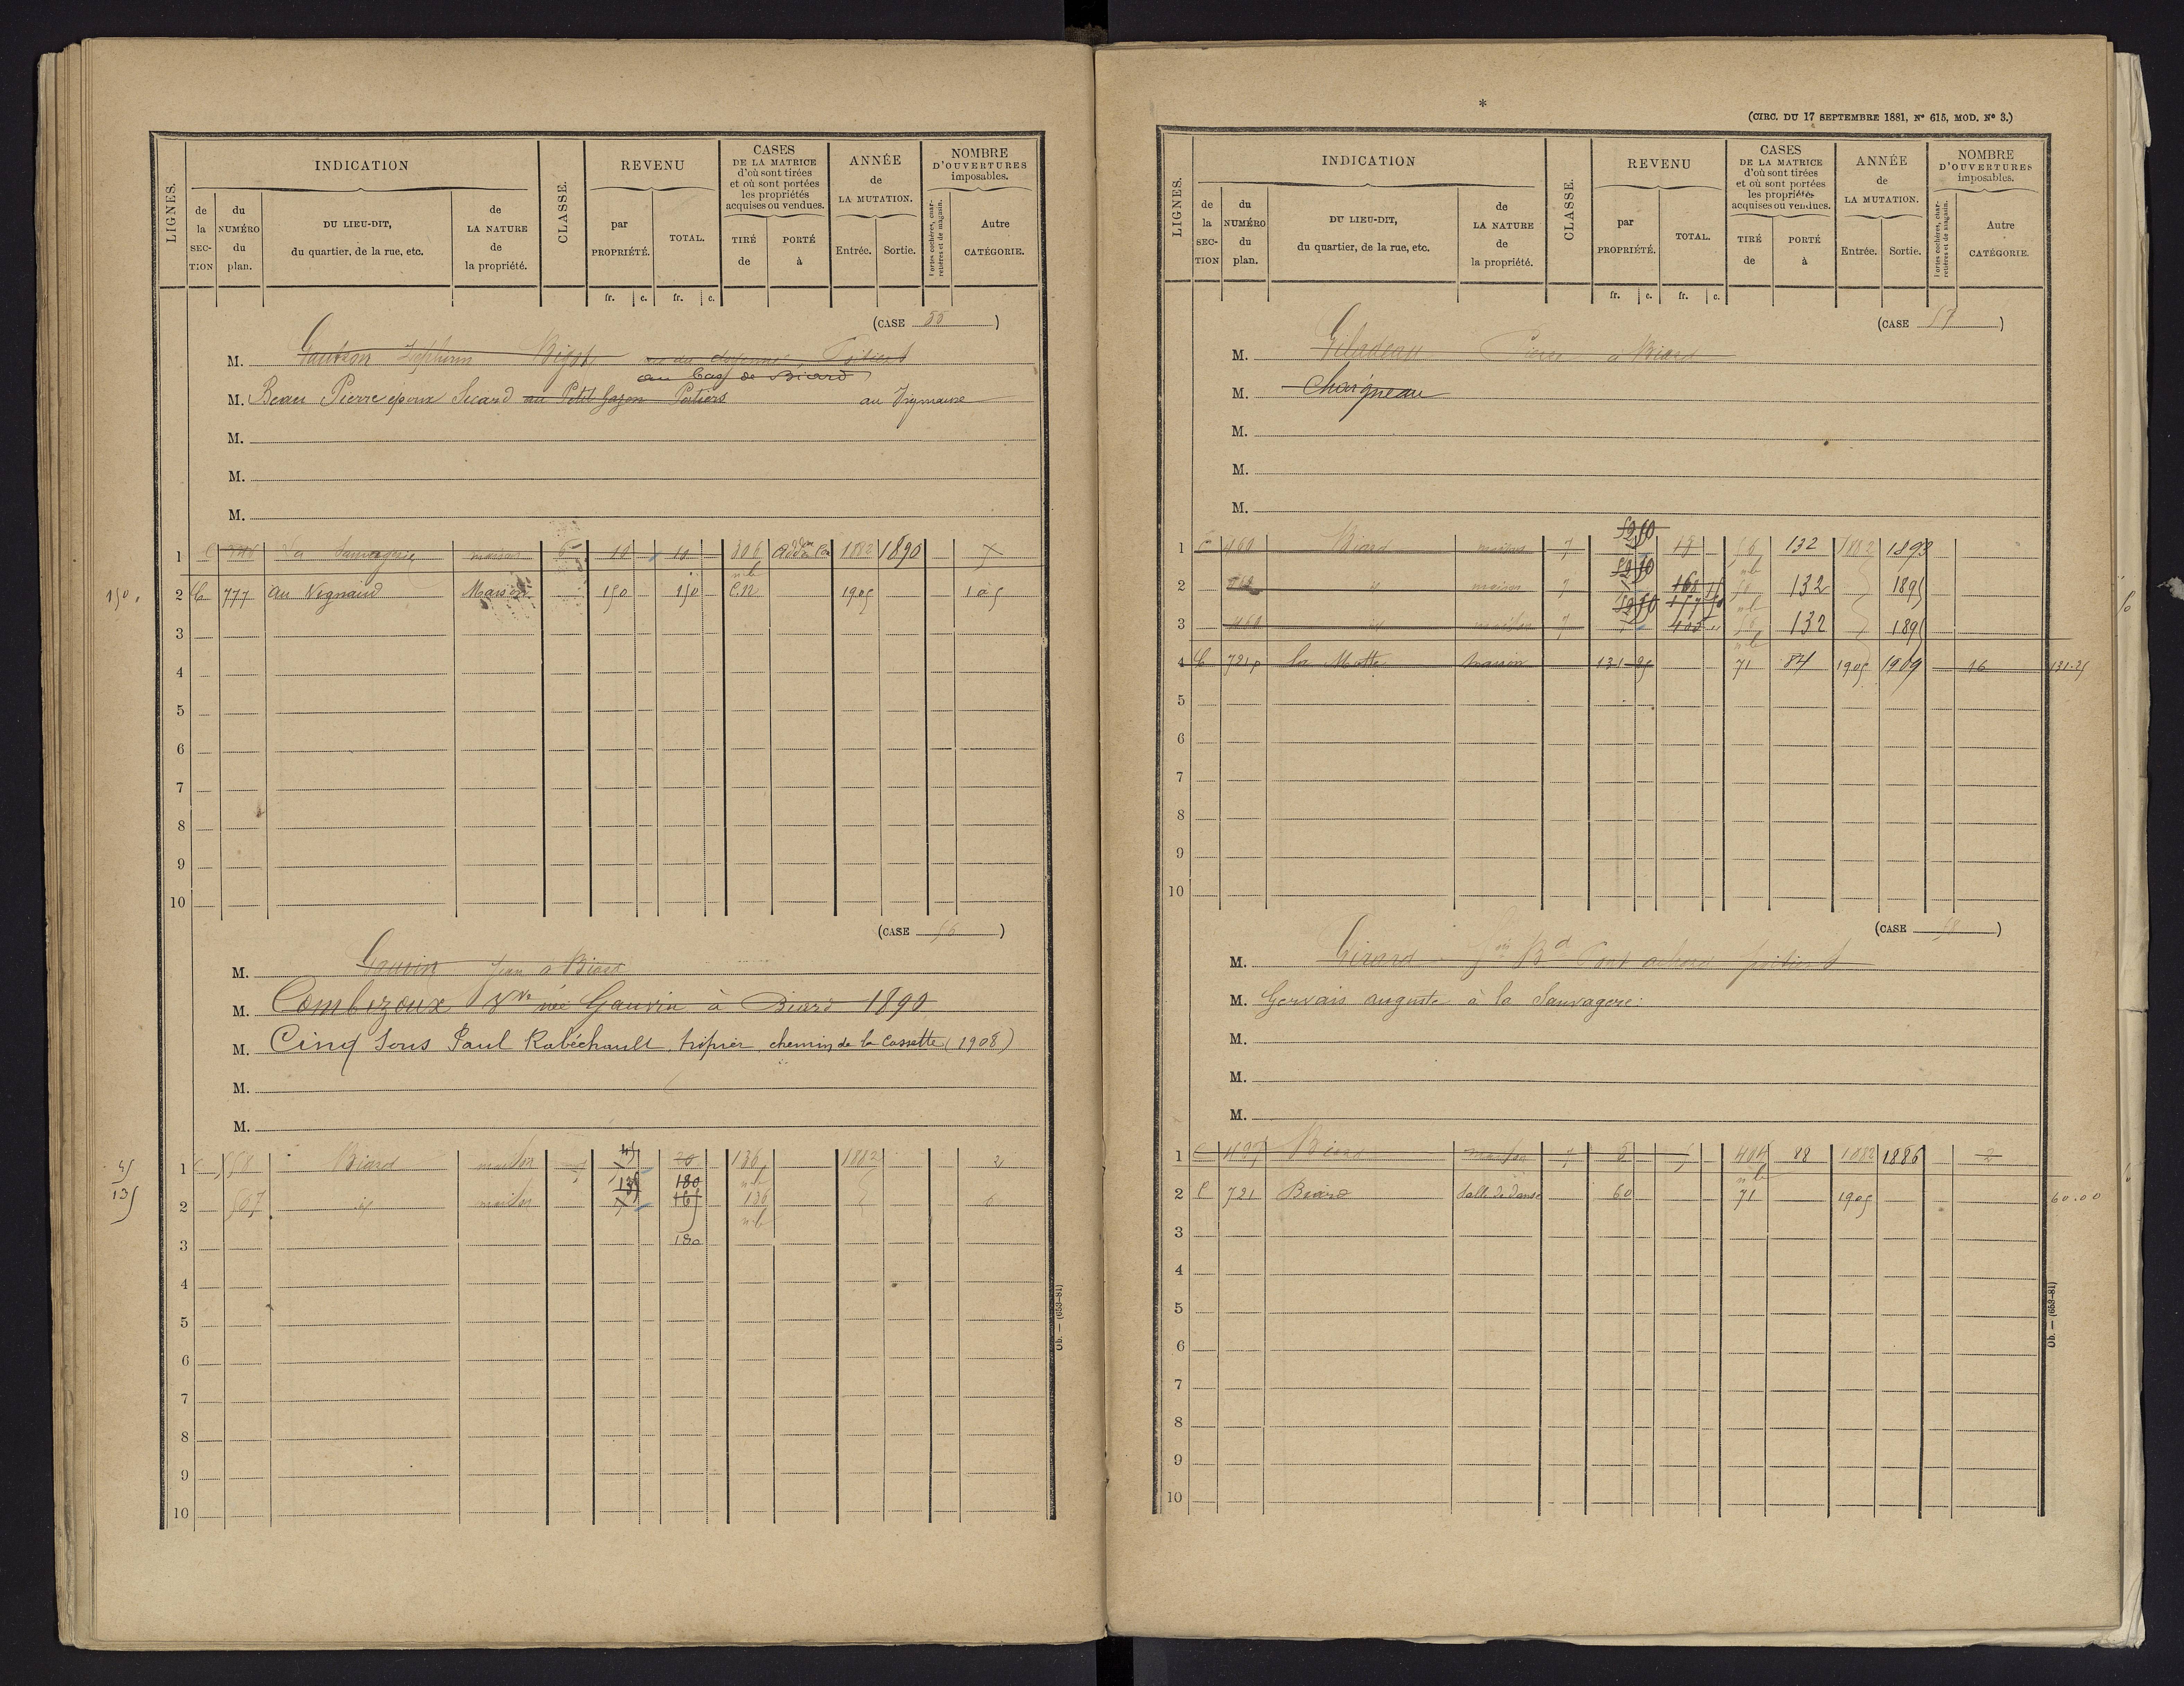 LIGNES.
INDICATION
de la SECTION
du NUMÉRO du plan.
DU LIEU-DIT, du quartier, de la rue, etc.
de LA NATURE de la propriété.
CLASSE.
REVENU
par PROPRIÉTÉ.
TOTAL.
CASES DE LA MATRICE d'où sont tirées et où sont portées les propriétés acquises ou vendues.
TIRÉ de
PORTÉ à
ANNÉE de LA MUTATION.
Entrée.
Sortie.
NOMBRE D'OUVERTURES imposables.
Portes cochères, charretières et de magasin.
Autre CATÉGORIE.
fr. c. fr. c.
(CASE 55)
M. Bigot rue du Poitiers
au bas de Biard
M. Beau Pierre époux Sicard au Petit Gazon Poitiers au Vignaud
M.
M.
M.
1 C La Sauvagerie maison 6 10 10 306 1882 1890
nb
150 2 C 777 au Vignaud Maison 150 150 C.N 1905 1 à 5
3
4
5
6
7
8
9
10
(CASE 56)
M. Gauvin Jean à Biard
M. Combezoux Vve née Gauvin à Biard 1890
M. Cinq Sous Paul Rabéchault, fripier, chemin de la Cassette (1908)
M.
M.
45 1 C 558 Biard maison 45 20 136 1882 2
nb
135 2 567 id maison 135 180 165 136 6
nb
3 180
4
5
6
7
8
9
10
Ob. — (653-81)
*
(CIRC. DU 17 SEPTEMBRE 1881, N° 615, MOD. N° 3.)
LIGNES.
INDICATION
de la SECTION
du NUMÉRO du plan.
DU LIEU-DIT, du quartier, de la rue, etc.
de LA NATURE de la propriété.
CLASSE.
REVENU
par PROPRIÉTÉ.
TOTAL.
CASES DE LA MATRICE d'où sont tirées et où sont portées les propriétés acquises ou vendues.
TIRÉ de
PORTÉ à
ANNÉE de LA MUTATION.
Entrée.
Sortie.
NOMBRE D'OUVERTURES imposables.
Portes cochères, charretières et de magasin.
Autre CATÉGORIE.
fr. c. fr. c.
(CASE 57)
M. Gilardeau Pierre à Biard
M. Chaigneau
M.
M.
M.
1 C 460 Biard maison 7 52,50 56 132 1882 1893
nb
2 id maison 7 52,50 56 132 1895
nb
3 460 id maison 7 52,50 157 50 56 132 1895
nb
4 C 721p la Motte maison 131-25 71 84 1905 1909 16 131-25
5
6
7
8
9
10
(CASE 58)
M. Girard Bd Pont achard poitiers
M. Gervais auguste à la Sauvagerie:
M.
M.
M.
1 C 497 Biard maison 7 5 5 404 88 1882 1886 2
nb
2 C 721 Biard Salle de danse 60 71 1905 60.00
3
4
5
6
7
8
9
10
Ob. — (653-81)